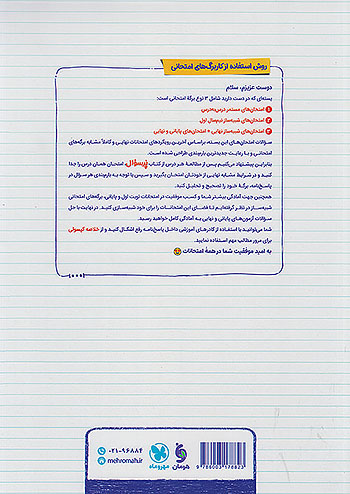 روش استفاده از کاربرگ‌های امتحانی
دوست عزیزم، سلام
بسته‌ای که در دست دارید شامل ۳ نوع برگهٔ امتحانی است:
۱ امتحان‌های مستمر درس‌به‌درس
۲ امتحان‌های شبه‌ساز نیم‌سال اول
۳ امتحان‌های شبه‌ساز نهایی + امتحان‌های پایانی و نهایی
سؤالات امتحان‌های این بسته، براساس آخرین رویکردهای امتحانات نهایی و کاملاً مشابه برگه‌های
امتحانی و با رعایت جدیدترین بارم‌بندی طراحی شده است.
بنابراین پیشنهاد می‌کنیم پس از مطالعهٔ هر درس از کتاب پُرسؤال، امتحان همان درس را جدا
کنید و در شرایط مشابه نهایی از خودتان امتحان بگیرید و سپس با توجه به بارم‌بندی هر سؤال در
پاسخ‌نامه، برگهٔ خود را تصحیح و تحلیل کنید.
همچنین جهت آمادگی بیشتر شما و کسب موفقیت در امتحانات نوبت اول و پایانی، برگه‌های امتحانی
شبه‌ساز در نظر گرفته‌ایم تا فضای این امتحانات را برای خود شبیه‌سازی کنید. در نهایت با حل
سؤالات آزمون‌های پایانی و نهایی به آمادگی کامل خواهید رسید.
شما می‌توانید با استفاده از کادرهای آموزشی داخل پاسخ‌نامه رفع اشکال کنید و از خلاصه کپسولی
برای مرور مطالب مهم استفاده نمایید.
به امید موفقیت شما در همهٔ امتحانات
۰۲۱-۹۶۸۸۴
mehromah.ir
مهروماه
هومان
9786003176823